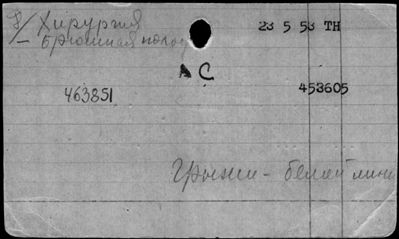 Хирургия 23 5 53 TH
Брюшная полос
А С
463851 453605
Грыжи - белой лини